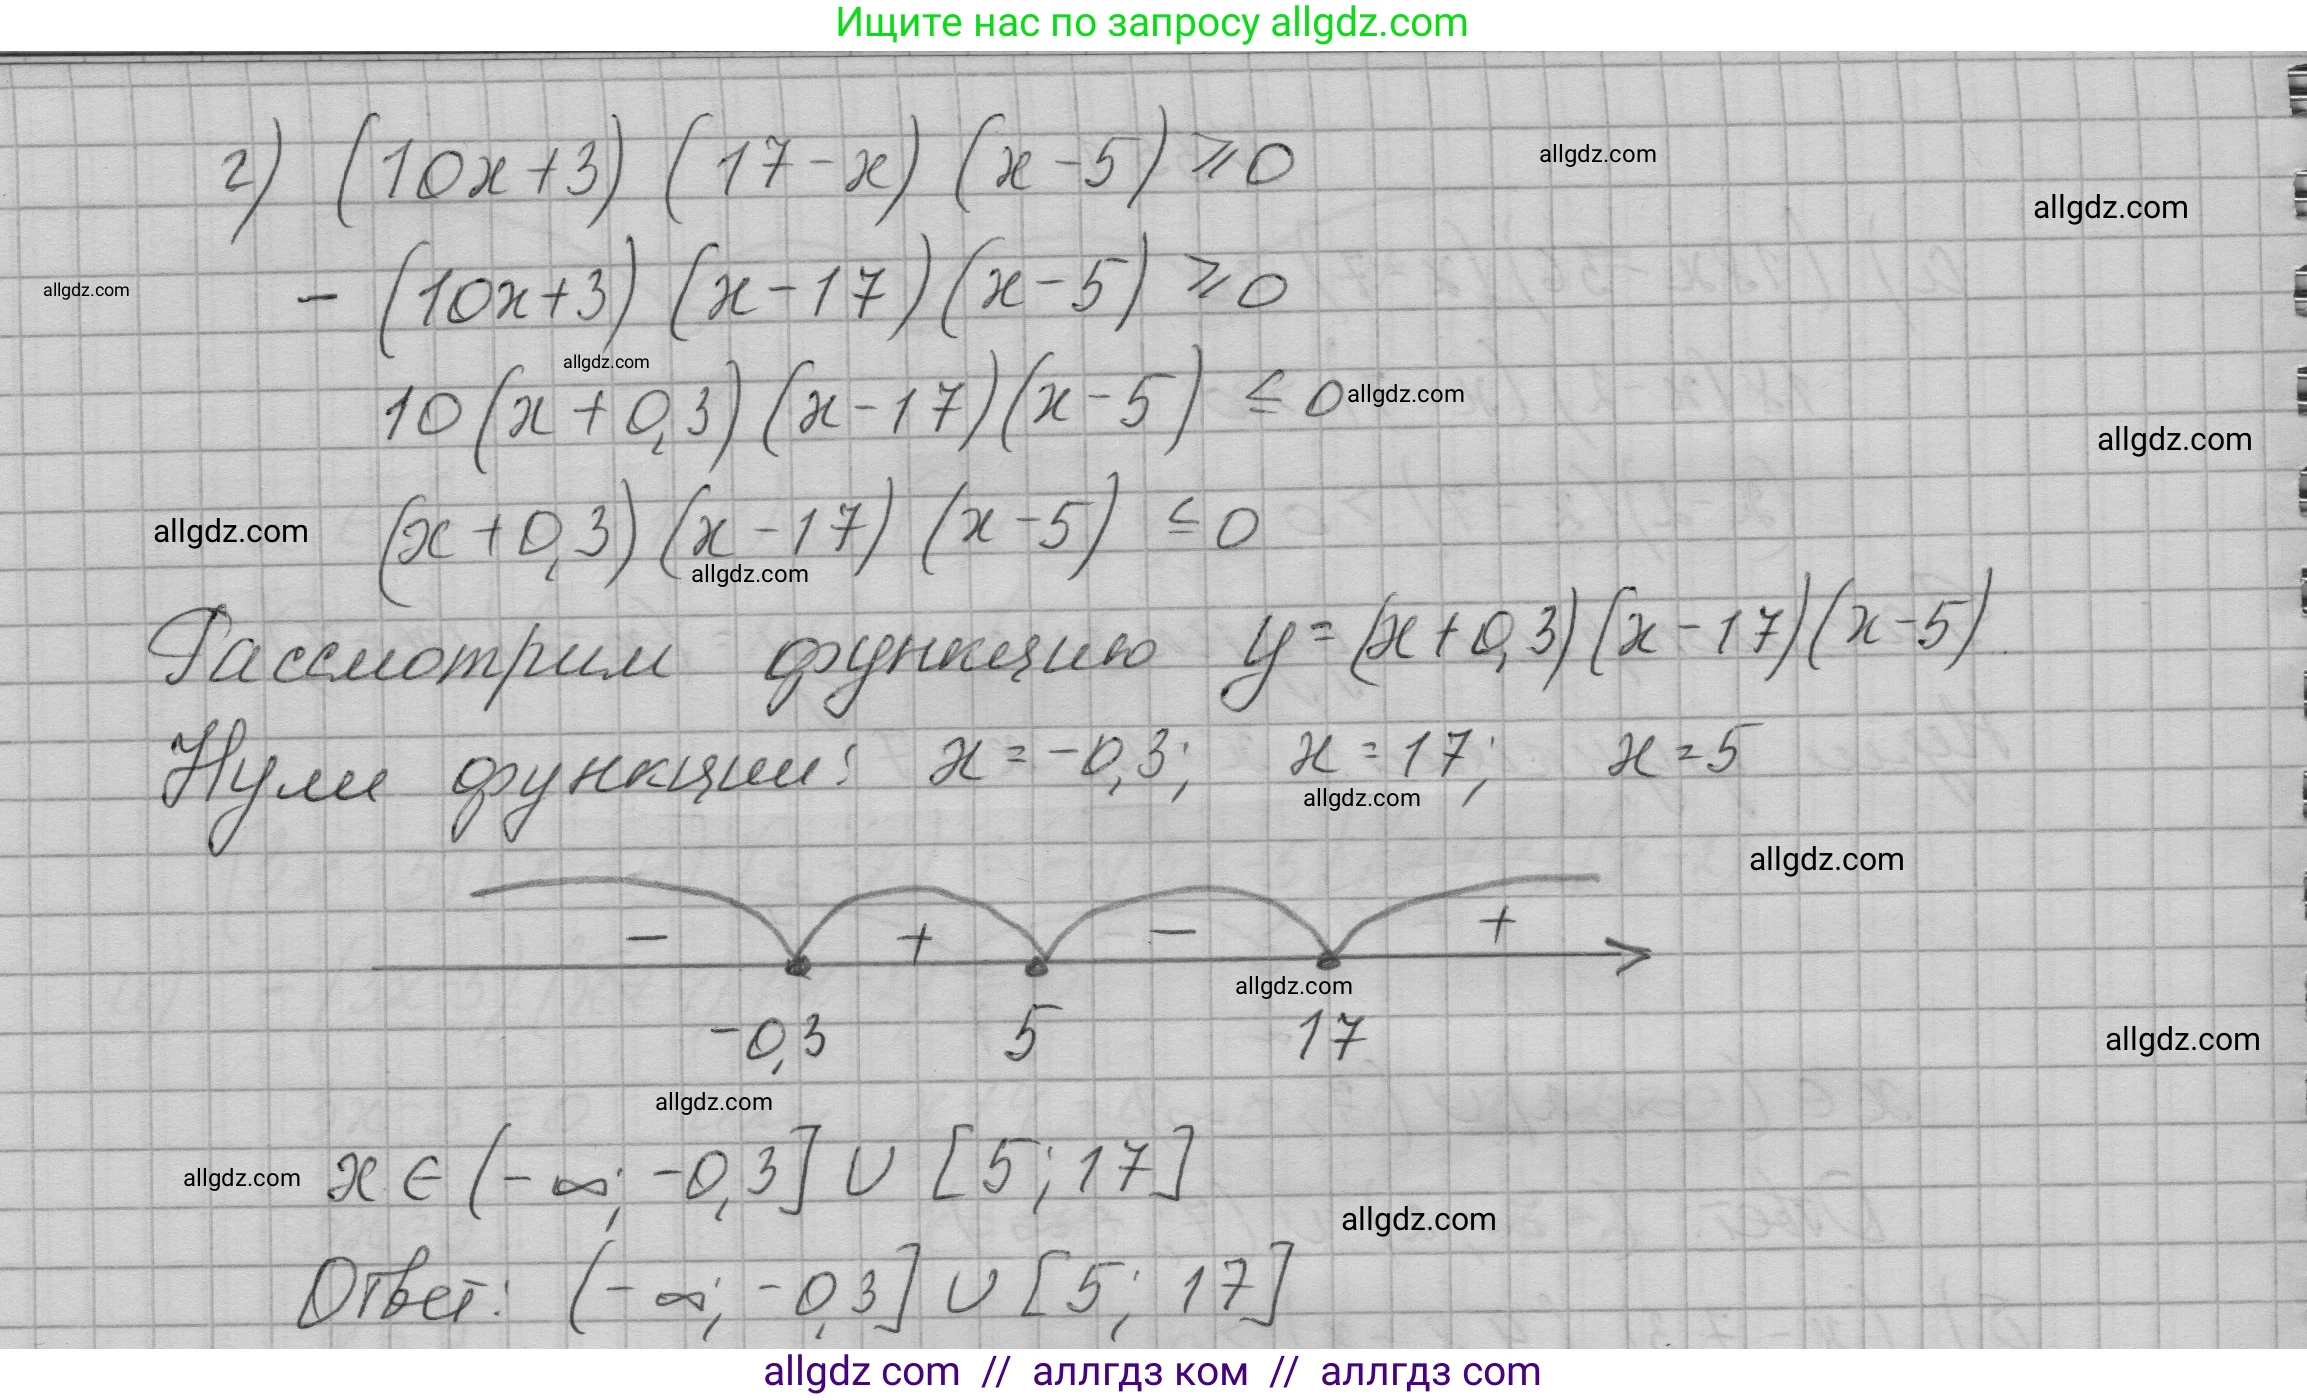 Ищите нас по запросу allgdz.com
г) (10x+3) (17-x) (x-5) ⩾ 0
allgdz.com
allgdz.com
- (10x+3) (x-17) (x-5) ⩾ 0
allgdz.com
allgdz.com
10 (x+0,3) (x-17) (x-5) ≤ 0
allgdz.com
allgdz.com
(x+0,3) (x-17) (x-5) ≤ 0
allgdz.com
allgdz.com
Рассмотрим функцию y = (x+0,3) (x-17) (x-5)
Нули функции: x = -0,3; x = 17; x = 5
allgdz.com
allgdz.com
- + - +
allgdz.com
-0,3 5 17
allgdz.com
allgdz.com
x ∈ (-∞; -0,3] ∪ [5; 17]
allgdz.com
allgdz.com
Ответ: (-∞; -0,3] ∪ [5; 17]
allgdz com // аллгдз ком // аллгдз com